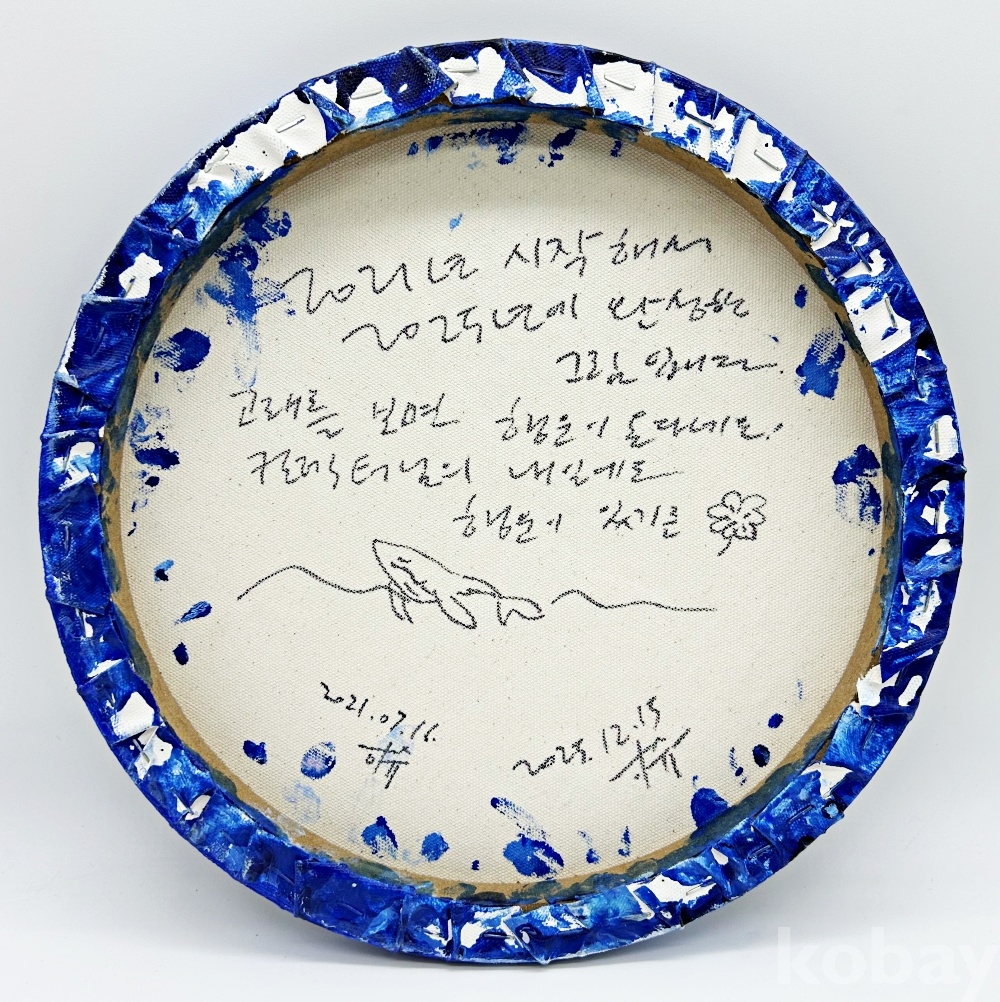 2021년 시작해서
2025년에 완성한
그림입니다.
고래를 보면 행운이 온다네요.
컬렉터님의 내일에도
행운이 있기를
2021.07.16.
2025.12.15
kobay